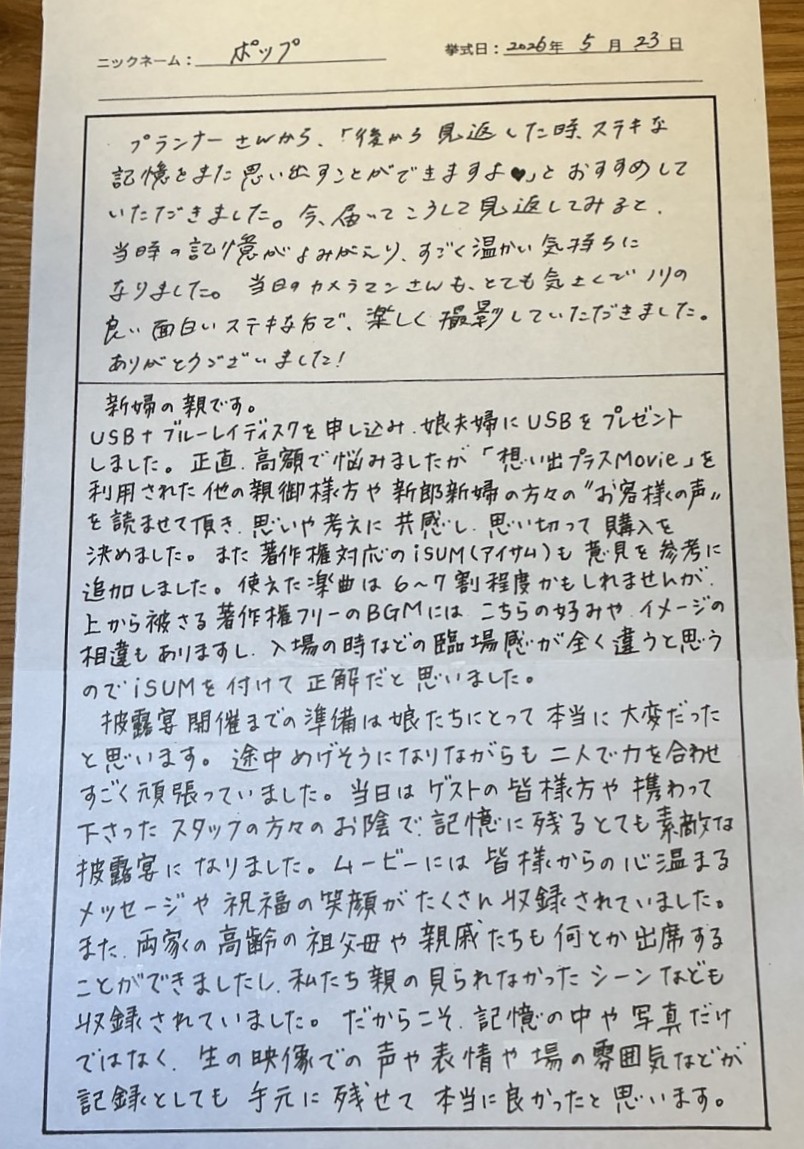 ニックネーム： ポップ 挙式日：2026年 5月 23日
プランナーさんから、「後から見返した時、ステキな
記憶をまた思い出すことができますよ♥」とおすすめして
いただきました。今、届いてこうして見返してみると、
当時の記憶がよみがえり、すごく温かい気持ちに
なりました。当日のカメラマンさんも、とても気さくでノリの
良い面白いステキな方で、楽しく撮影していただきました。
ありがとうございました！
新婦の親です。
USB+ブルーレイディスクを申し込み、娘夫婦にUSBをプレゼント
しました。正直、高額で悩みましたが「想い出プラスMovie」を
利用された他の親御様方や新郎新婦の方々の〝お客様の声〟
を読ませて頂き、思いや考えに共感し、思い切って購入を
決めました。また著作権対応のiSUM(アイサム)も意見を参考に
追加しました。使えた楽曲は6〜7割程度かもしれませんが、
上から被さる著作権フリーのBGMにはこちらの好みや、イメージの
相違もありますし、入場の時などの臨場感が全く違うと思う
のでiSUMを付けて正解だと思いました。
披露宴開催までの準備は娘たちにとって本当に大変だった
と思います。途中めげそうになりながらも二人で力を合わせ
すごく頑張っていました。当日はゲストの皆様方や携わって
下さったスタッフの方々のお陰で、記憶に残るとても素敵な
披露宴になりました。ムービーには皆様からの心温まる
メッセージや祝福の笑顔がたくさん収録されていました。
また、両家の高齢の祖父母や親戚たちも何とか出席する
ことができましたし、私たち親の見られなかったシーンなども
収録されていました。だからこそ、記憶の中や写真だけ
ではなく、生の映像での声や表情や場の雰囲気などが
記録としても手元に残せて本当に良かったと思います。